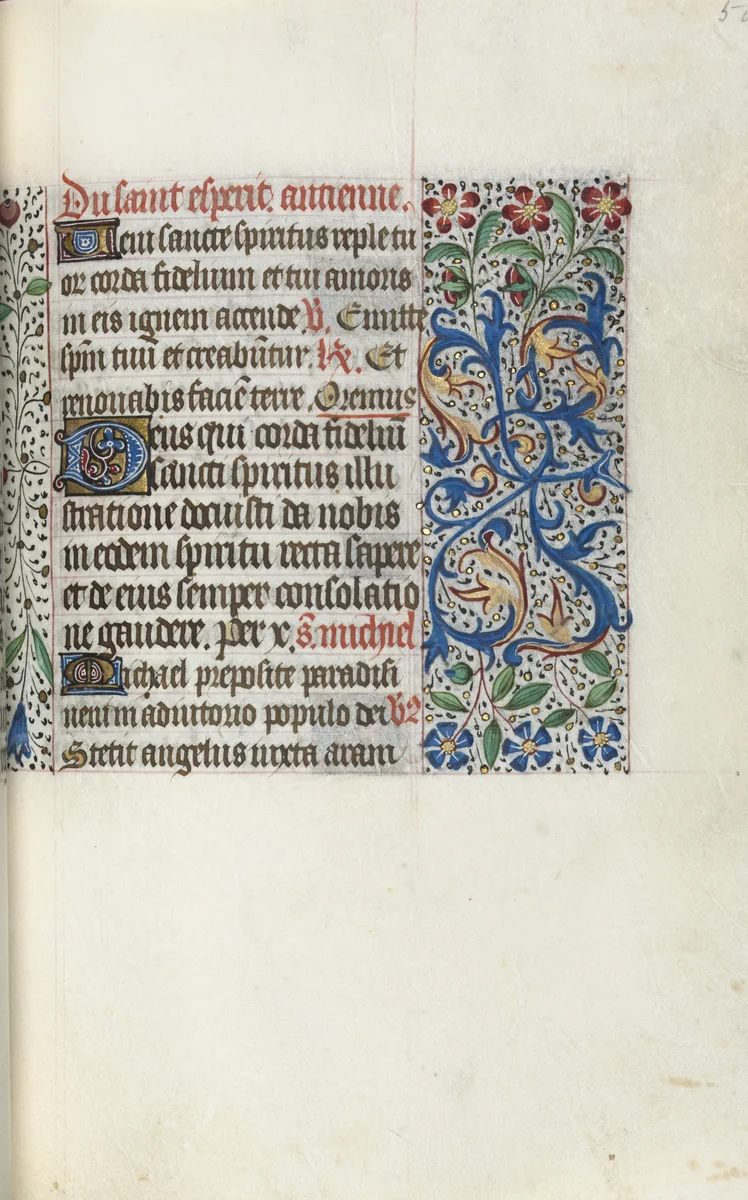 Du saint esperit. antienne.
Ueni sancte spiritus reple tu
or corda fidelium et tui amoris
in eis ignem accende V. Emitte
sp̄m tuū et creabūtur. R. Et
renouabis faciē terre. Oremus
Deus qui corda fideliū
sancti spiritus illu
stratione docuisti da nobis
in eodem spiritu recta sapere
et de eius semper consolatio
ne gaudere. per x. s. michiel
Michael preposite paradisi
ueni in adiutorio populo dei V
Stetit angelus iuxta aram